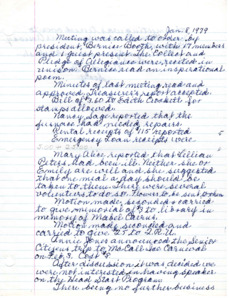 Jan. 8, 1979
Meeting was called to order by
president, Bernice Booth, with 17 members
and 1 guest present. The Collect and
Pledge of Allegiance were recited in
unison. Bernice read an inspirational
poem.
Minutes of last meeting read and
approved. Treasurer's report received.
Bill of $1.60 to Edith Crockett for
stamps allowed.
Nancy Sage reported that the
furnace had needed repairs.
Rental receipts of $115 reported
Emergency Loan receipts were
Mary Alice reported that Lillian
had been ill. Neither she or
are well and she suggested
that one meal a day should be
taken to them. There were several
volunteers to do so. Flowers to be sent
Motion made, seconded & carried
to give memorial of $5 to library in
memory of Mabel
Motion made, seconded and
carried to give $5.00 to
Annie Jones announced the Senior
Citizens trip to
on Feb 3, Cost $
After discussion it was decided we
were not interested in having speaker
on the Head Start Program
There being no further business